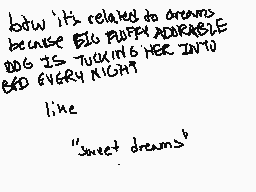 btw it's related to dreams
because BIG FLUFFY ADORABLE
DOG IS TUCKING HER INTO
BED EVERY NIGHT
like
"sweet dreams"